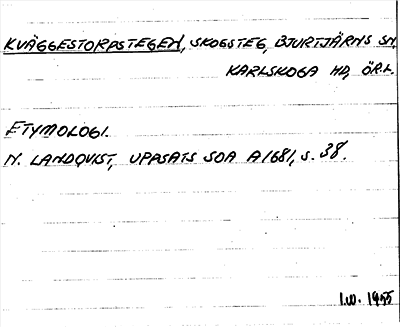 KVÄGGESTORPSTEGEN, SKOGSTEG, BJURTJÄRNS SN,
KARLSKOGA HD, ÖR.L.
ETYMOLOGI.
N. LANDQVIST, UPPSATS SOA A1681, S. 38.
I.W. 1955